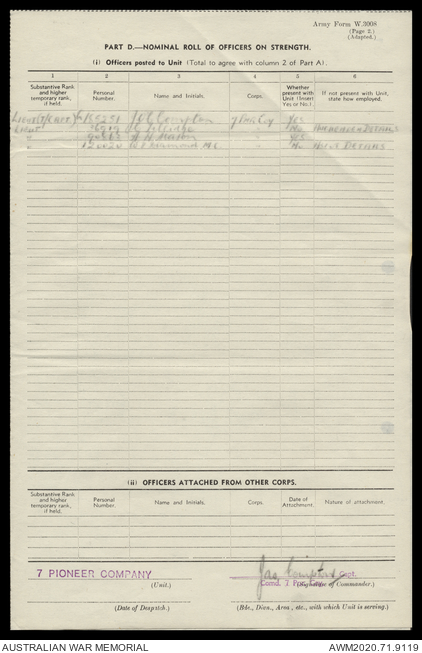 Army Form W.3008
(Page 2.)
(Adapted.)
PART D.—NOMINAL ROLL OF OFFICERS ON STRENGTH.
(i) Officers posted to Unit (Total to agree with column 2 of Part A).
1 2 3 4 5 6
Substantive Rank and higher temporary rank, if held. Personal Number. Name and Initials. Corps. Whether present with Unit (Insert Yes or No.) If not present with Unit, state how employed.
Compton Yes
Lieut No
" Yes
" No DETAILS
(ii) OFFICERS ATTACHED FROM OTHER CORPS.
Substantive Rank and higher temporary rank, if held. Personal Number. Name and Initials. Corps. Date of Attachment. Nature of attachment.
7 PIONEER COMPANY
(Unit.)
Capt.
Comd. 7 (Signature of Commander.)
(Date of Despatch.)
(Bde., Divn., Area, etc., with which Unit is serving.)
AUSTRALIAN WAR MEMORIAL
AWM2020.71.9119